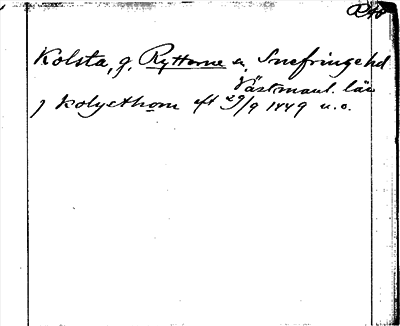 Kolsta, g. Rytterne sn, Snefringe hd
Västmanl. län
j Kolgethom eft 29/9 1449 u.o.